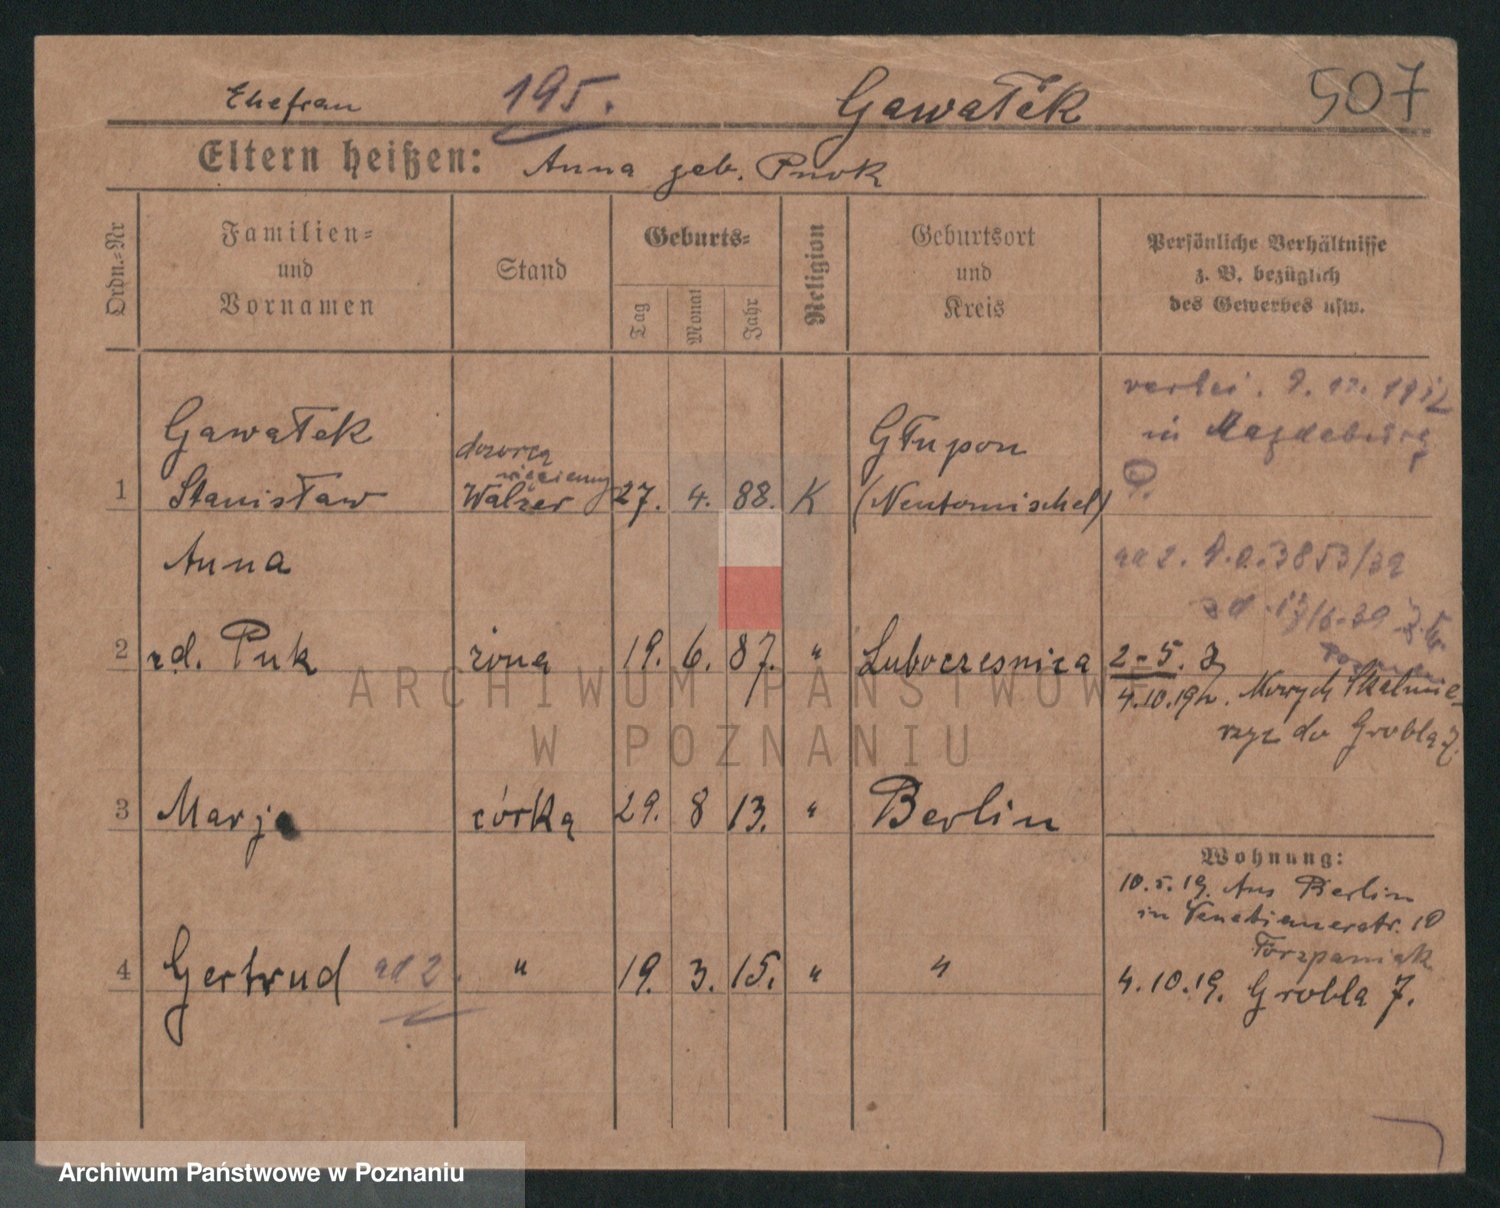 Ehefrau 195. Gawałek 507
Eltern heißen: Anna geb. Puok
Ordn.-Nr
Familien-
und
Vornamen
Stand
Geburts-
Tag
Monat
Jahr
Religion
Geburtsort
und
Kreis
Persönliche Verhältnisse
z. B. bezüglich
des Gewerbes usw.
1
Gawałek
Stanisław
dozorca
Walzer
27. 4. 88. K
Głupon
(Neutomischel)
in Magdeburg
2
Anna
rd. Puk
żona
19. 6. 87. "
Luboczesnica
2-5.
4.10.19
do Grobla 7.
3
Marja
córka
29. 8 13. "
Berlin
4
Gertrud ad 2.
"
19. 3. 15. "
"
Wohnung:
10.5.19. Aus Berlin
in Venetianerstr. 10
4.10.19. Grobla 7.
ARCHIWUM PAŃSTWOW
W POZNANIU
Archiwum Państwowe w Poznaniu